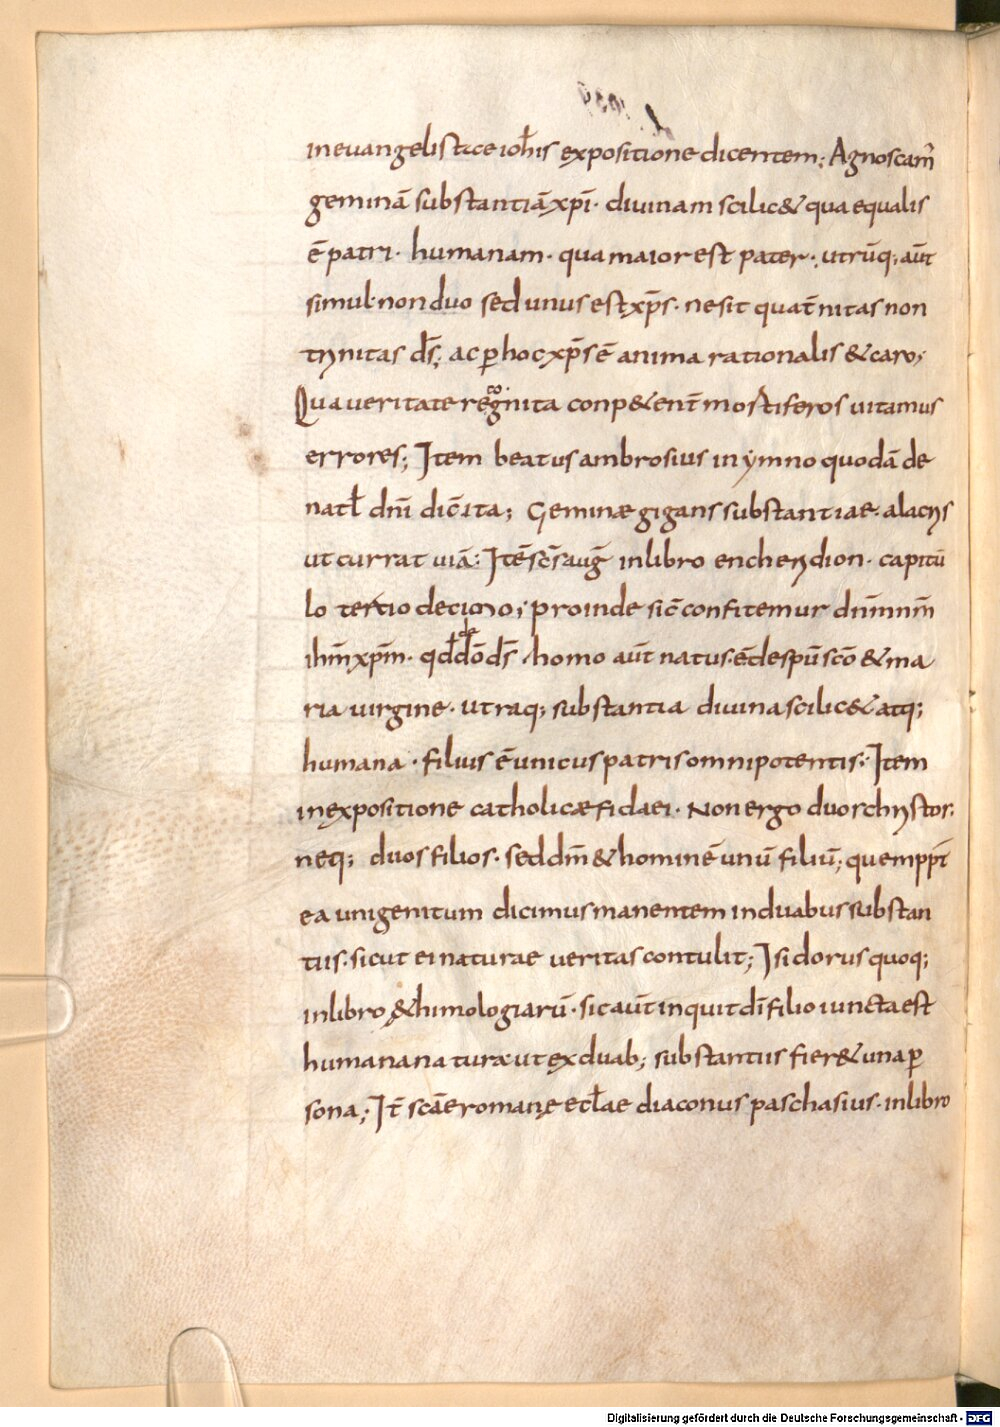 in euangelistae ioh̄is expositione dicentem; Agnoscam̄
geminā substantiā xp̄i· diuinam scilic& qua equalis
ē patri· humanam· qua maior est pater·; utrūq; aūt
simul· non duo sed unus est xp̄s· ne sit quat̄nitas non
trinitas d̄s; ac ꝑ hoc xp̄s ē anima rationalis & caro;
Qua ueritate recognita conp&ent̄ mostiferos uitamus
errores; Item beatus ambrosius in ymno quodā de
natł dn̄i dic̄ ita; Geminæ gigans substantiae· alacris
ut currat uiā: Itē sc̄s aug̅ in libro encheridion· capitū
lo tertio decimo; proinde sic̄ confitemur dn̄m nr̄m
ih̄m xp̄m· qđ đs de đo· homo aūt natus· ē de spū sc̄o & ma
ria uirgine· utraq; substantia diuina scilic& atq;
humana· filius ē unicus patris omnipotentis; Item
in expositione catholicæ fidaei· Non ergo duos christos·
neq; duos filios· sed dm̄ & hominē unū filiū; quem ppt̄
ea unigenitum dicimus manentem in duabus substan
tiis· sicut ei naturae ueritas contulit; Isidorus quoq;
in libro &himologiarū· sic aūt inquit dī filio iuncta est
humana natura ut ex duab; substantiis fier& una ꝑ
sona; It̄ sc̄ae romanę ecłae diaconus paschasius· in libro
Digitalisierung gefördert durch die Deutsche Forschungsgemeinschaft - DFG